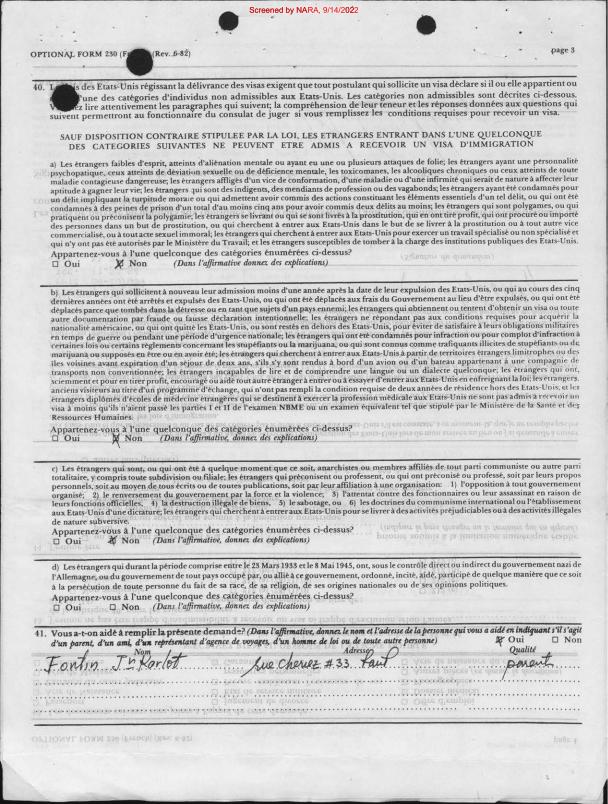 Screened by NARA, 9/14/2022
OPTIONAL FORM 230 (F (Rev. 6-82) page 3
40. L is des Etats-Unis régissant la délivrance des visas exigent que tout postulant qui sollicite un visa déclare si il ou elle appartient ou
'une des catégories d'individus non admissibles aux Etats-Unis. Les catégories non admissibles sont décrites ci-dessous.
V ez lire attentivement les paragraphes qui suivent; la compréhension de leur teneur et les réponses données aux questions qui
suivent permettront au fonctionnaire du consulat de juger si vous remplissez les conditions requises pour recevoir un visa.
SAUF DISPOSITION CONTRAIRE STIPULEE PAR LA LOI, LES ETRANGERS ENTRANT DANS L'UNE QUELCONQUE
DES CATEGORIES SUIVANTES NE PEUVENT ETRE ADMIS A RECEVOIR UN VISA D'IMMIGRATION
a) Les étrangers faibles d'esprit, atteints d'aliénation mentale ou ayant eu une ou plusieurs attaques de folie; les étrangers ayant une personnalité
psychopatique, ceux atteints de déviation sexuelle ou de déficience mentale, les toxicomanes, les alcooliques chroniques ou ceux atteints de toute
maladie contagieuse dangereuse; les étrangers affligés d'un vice de conformation, d'une maladie ou d'une infirmité qui serait de nature à affecter leur
aptitude à gagner leur vie; les étrangers qui sont des indigents, des mendiants de profession ou des vagabonds; les étrangers ayant été condamnés pour
un délit impliquant la turpitude morale ou qui admettent avoir commis des actions constituant les éléments essentiels d'un tel délit, ou qui ont été
condamnés à des peines de prison d'un total d'au moins cinq ans pour avoir commis deux délits au moins; les étrangers qui sont polygames, ou qui
pratiquent ou préconisent la polygamie; les étrangers se livrant ou qui se sont livrés à la prostitution, qui en ont tiré profit, qui ont procuré ou importé
des personnes dans un but de prostitution, ou qui cherchent à entrer aux Etats-Unis dans le but de se livrer à la prostitution ou à tout autre vice
commercialisé, ou à tout acte sexuel immoral; les étrangers qui cherchent à entrer aux Etats-Unis pour exercer un travail spécialisé ou non spécialisé et
qui n'y ont pas été autorisés par le Ministère du Travail; et les étrangers susceptibles de tomber à la charge des institutions publiques des Etats-Unis.
Appartenez-vous à l'une quelconque des catégories énumérées ci-dessus?
☐ Oui ☒ Non (Dans l'affirmative donnez des explications)
b) Les étrangers qui sollicitent à nouveau leur admission moins d'une année après la date de leur expulsion des Etats-Unis, ou qui au cours des cinq
dernières années ont été arrêtés et expulsés des Etats-Unis, ou qui ont été déplacés aux frais du Gouvernement au lieu d'être expulsés, ou qui ont été
déplacés parce que tombés dans la détresse ou en tant que sujets d'un pays ennemi; les étrangers qui obtiennent ou tentent d'obtenir un visa ou toute
autre documentation par fraude ou fausse déclaration intentionnelle; les étrangers ne répondant pas aux conditions requises pour acquérir la
nationalité américaine, ou qui ont quitté les Etats-Unis, ou sont restés en dehors des Etats-Unis, pour éviter de satisfaire à leurs obligations militaires
en temps de guerre ou pendant une période d'urgence nationale; les étrangers qui ont été condamnés pour infraction ou pour complot d'infraction à
certaines lois ou certains règlements concernant les stupéfiants ou la marijuana, ou qui sont connus comme trafiquants illicites de stupéfiants ou de
marijuana ou supposés en être ou en avoir été; les étrangers qui cherchent à entrer aux Etats-Unis à partir de territoires étrangers limitrophes ou des
îles voisines avant expiration d'un séjour de deux ans, s'ils s'y sont rendus à bord d'un avion ou d'un bateau appartenant à une compagnie de
transports non conventionnée; les étrangers incapables de lire et de comprendre une langue ou un dialecte quelconque; les étrangers qui ont,
sciemment et pour en tirer profit, encouragé ou aidé tout autre étranger à entrer ou à essayer d'entrer aux Etats-Unis en enfreignant la loi; les étrangers,
anciens visiteurs au titre d'un programme d'échange, qui n'ont pas rempli la condition requise de deux années de résidence hors des Etats-Unis; et les
étrangers diplômés d'écoles de médecine étrangères qui se destinent à exercer la profession médicale aux Etats-Unis ne sont pas admis à recevoir un
visa à moins qu'ils n'aient passé les parties I et II de l'examen NBME ou un examen équivalent tel que stipulé par le Ministère de la Santé et des
Ressources Humaines.
Appartenez-vous à l'une quelconque des catégories énumérées ci-dessus?
☐ Oui ☒ Non (Dans l'affirmative, donnez des explications)
c) Les étrangers qui sont, ou qui ont été à quelque moment que ce soit, anarchistes ou membres affiliés de tout parti communiste ou autre parti
totalitaire, y compris toute subdivision ou filiale; les étrangers qui préconisent ou professent, ou qui ont préconisé ou professé, soit par leurs propos
personnels, soit au moyen de tous écrits ou de toutes publications, soit par leur affiliation à une organisation: 1) l'opposition à tout gouvernement
organisé; 2) le renversement du gouvernement par la force et la violence; 3) l'attentat contre des fonctionnaires ou leur assassinat en raison de
leurs fonctions officielles, 4) la destruction illégale de biens, 5) le sabotage, ou 6) les doctrines du communisme international ou l'établissement
aux Etats-Unis d'une dictature; les étrangers qui cherchent à entrer aux Etats-Unis pour se livrer à des activités préjudiciables ou à des activités illégales
de nature subversive.
Appartenez-vous à l'une quelconque des catégories énumérées ci-dessus?
☐ Oui ☒ Non (Dans l'affirmative, donnez des explications)
d) Les étrangers qui durant la période comprise entre le 23 Mars 1933 et le 8 Mai 1945, ont, sous le contrôle direct ou indirect du gouvernement nazi de
l'Allemagne, ou du gouvernement de tout pays occupé par, ou allié à ce gouvernement, ordonné, incité, aidé, participé de quelque manière que ce soit
à la persécution de toute personne du fait de sa race, de sa religion, de ses origines nationales ou de ses opinions politiques.
Appartenez-vous à l'une quelconque des catégories énumérées ci-dessus?
☐ Oui ☐ Non (Dans l'affirmative, donnez des explications)
41. Vous a-t-on aidé à remplir la présente demande? (Dans l'affirmative, donnez le nom et l'adresse de la personne qui vous a aidé en indiquant s'il s'agit
d'un parent, d'un ami, d'un représentant d'agence de voyages, d'un homme de loi ou de toute autre personne) ☒ Oui ☐ Non
Nom Adresse Qualité
Fontin Jn Karlot Rue Cheriez #33 Paul parent